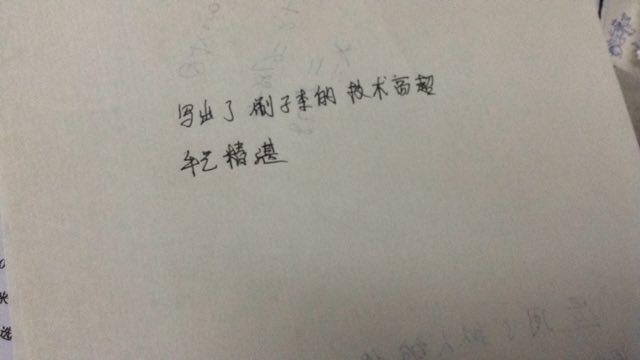 写出了刷子李的技术高超
手艺精湛
选